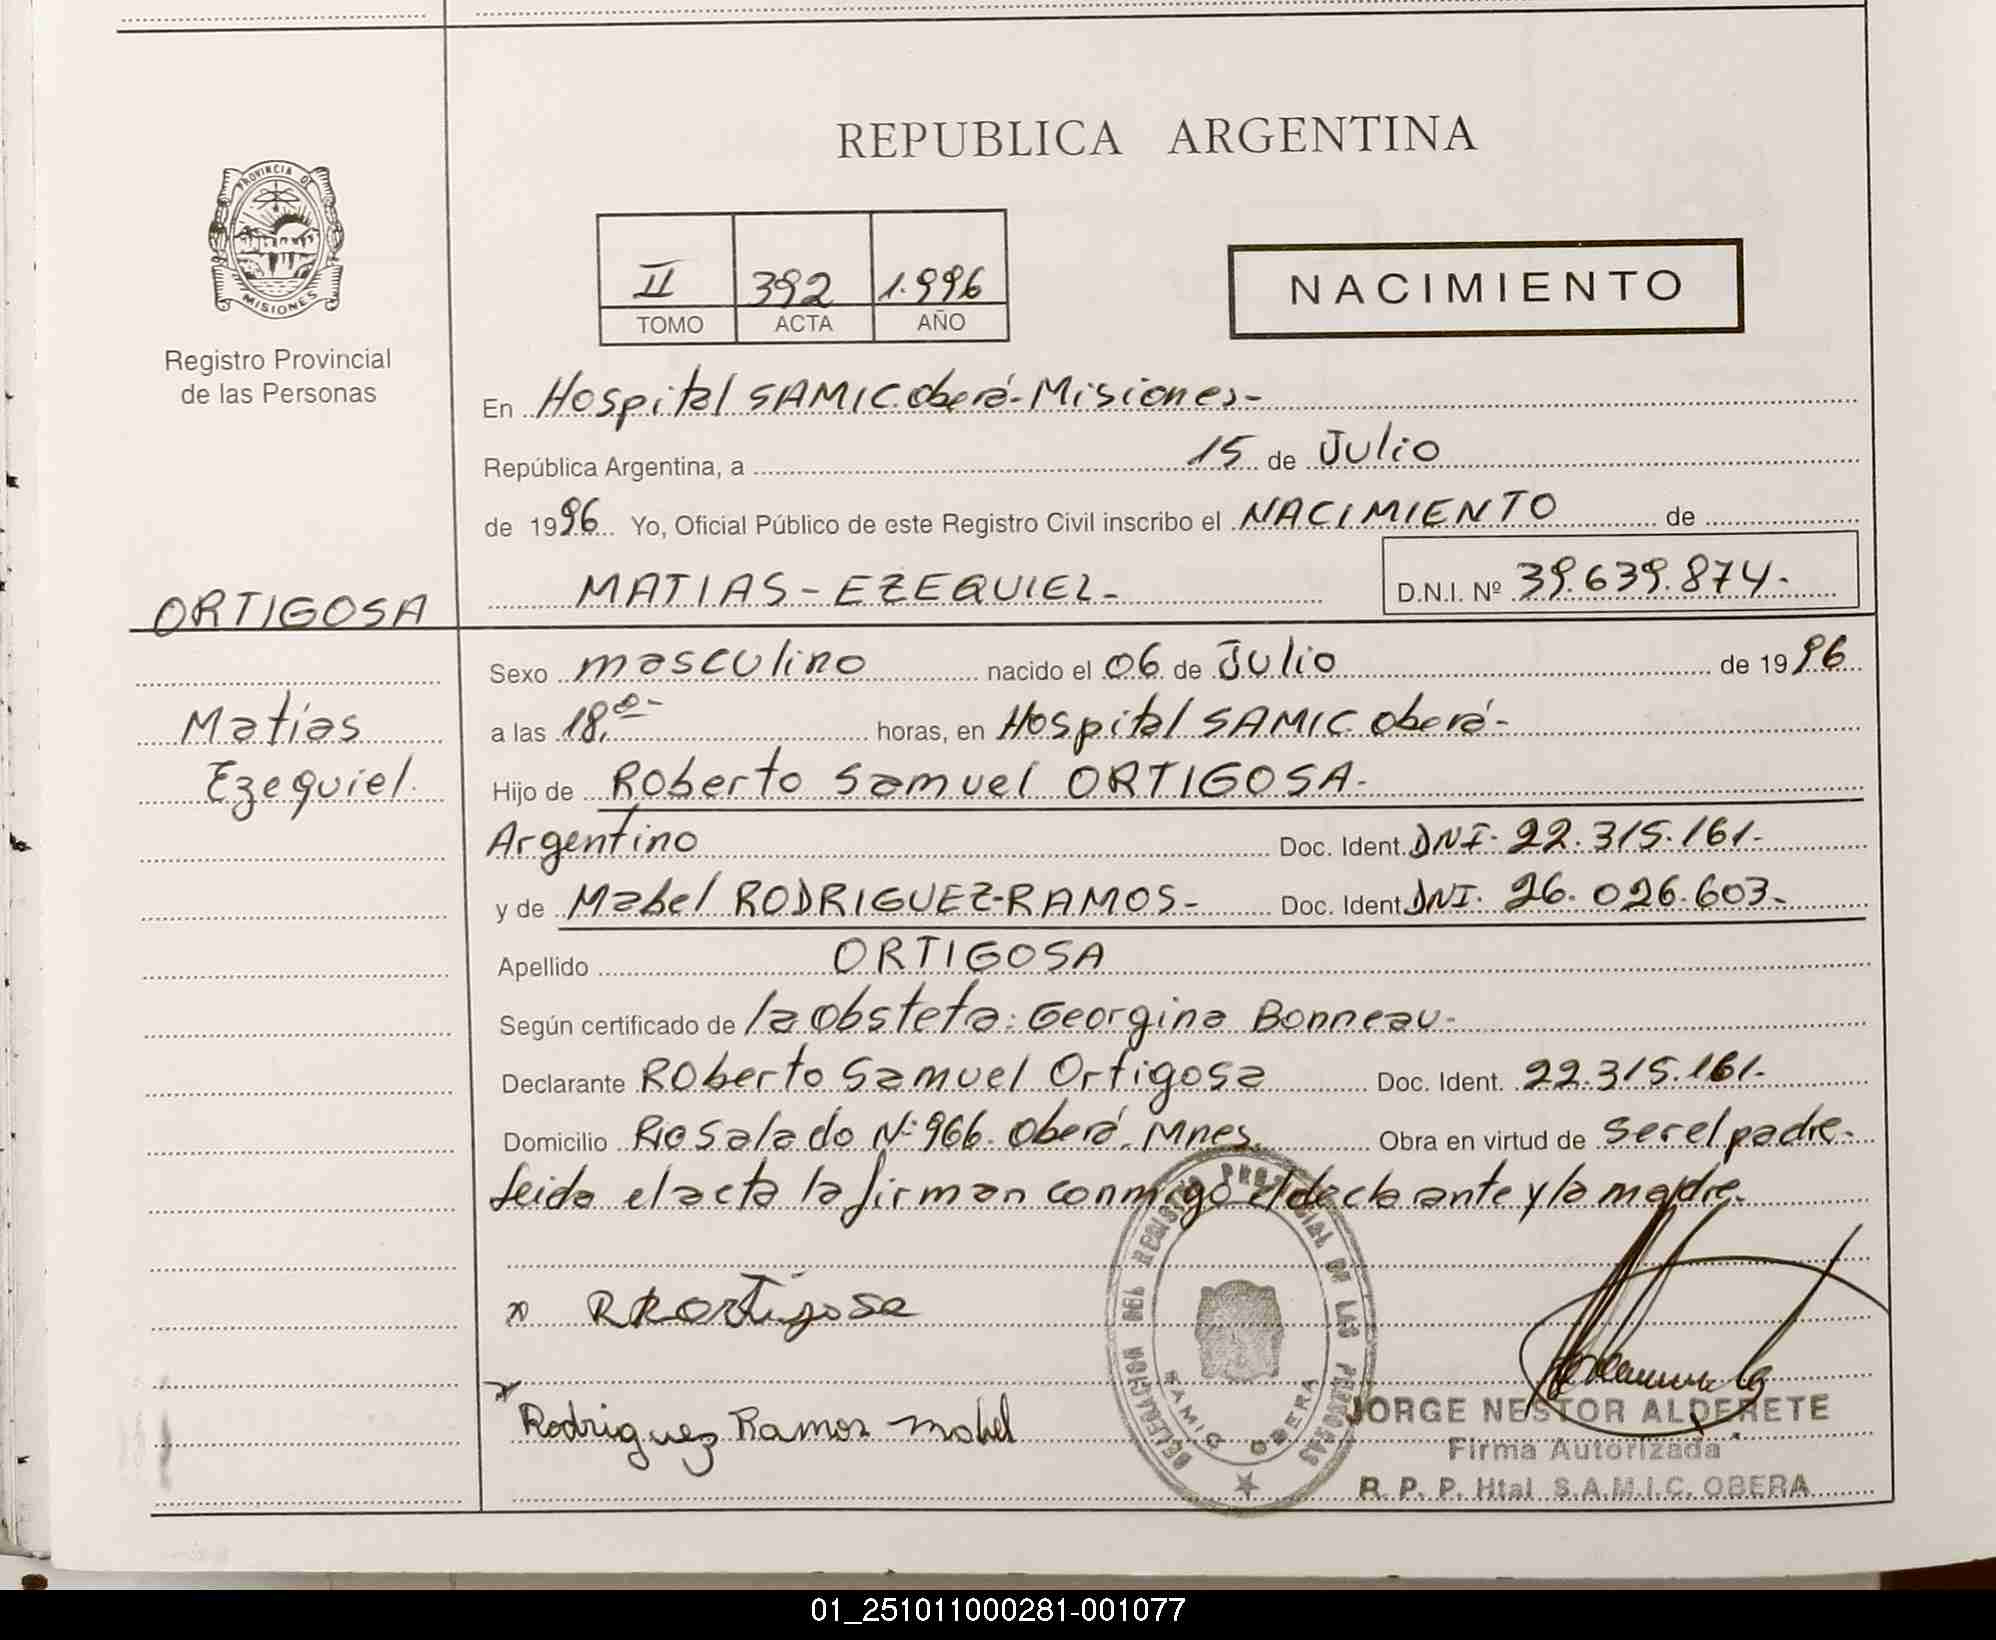 REPUBLICA ARGENTINA
PROVINCIA DE
MISIONES
Registro Provincial
de las Personas
II 392 1.996
TOMO ACTA AÑO
NACIMIENTO
En Hospital SAMIC Oberá-Misiones-
República Argentina, a 15 de Julio
de 1996 Yo, Oficial Público de este Registro Civil inscribo el NACIMIENTO de
MATIAS-EZEQUIEL- D.N.I. Nº 39.639.874-
ORTIGOSA
Matías
Ezequiel.
Sexo masculino nacido el 06 de Julio de 1996
a las 18,00- horas, en Hospital SAMIC. Oberá-
Hijo de Roberto Samuel ORTIGOSA-
Argentino Doc. Ident. DNI- 22.315.161-
y de Mabel RODRIGUEZ-RAMOS- Doc. Ident. DNI. 26.026.603-
Apellido ORTIGOSA
Según certificado de la obsteta: Georgina Bonneau-
Declarante Roberto Samuel Ortigosa Doc. Ident. 22.315.161-
Domicilio Rio Salado Nº 966. Oberá. Mnes. Obra en virtud de ser el padre-
Leida el acta la firman conmigo el declarante y la madre-
x RROrtigosa
x Rodriguez Ramos Mabel
DELEGACION DEL REGISTRO PROVINCIAL DE LAS PERSONAS
SAMIC OBERA
JORGE NESTOR ALDERETE
Firma Autorizada
R. P. P. Htal S.A.M.I.C. OBERA
01_251011000281-001077